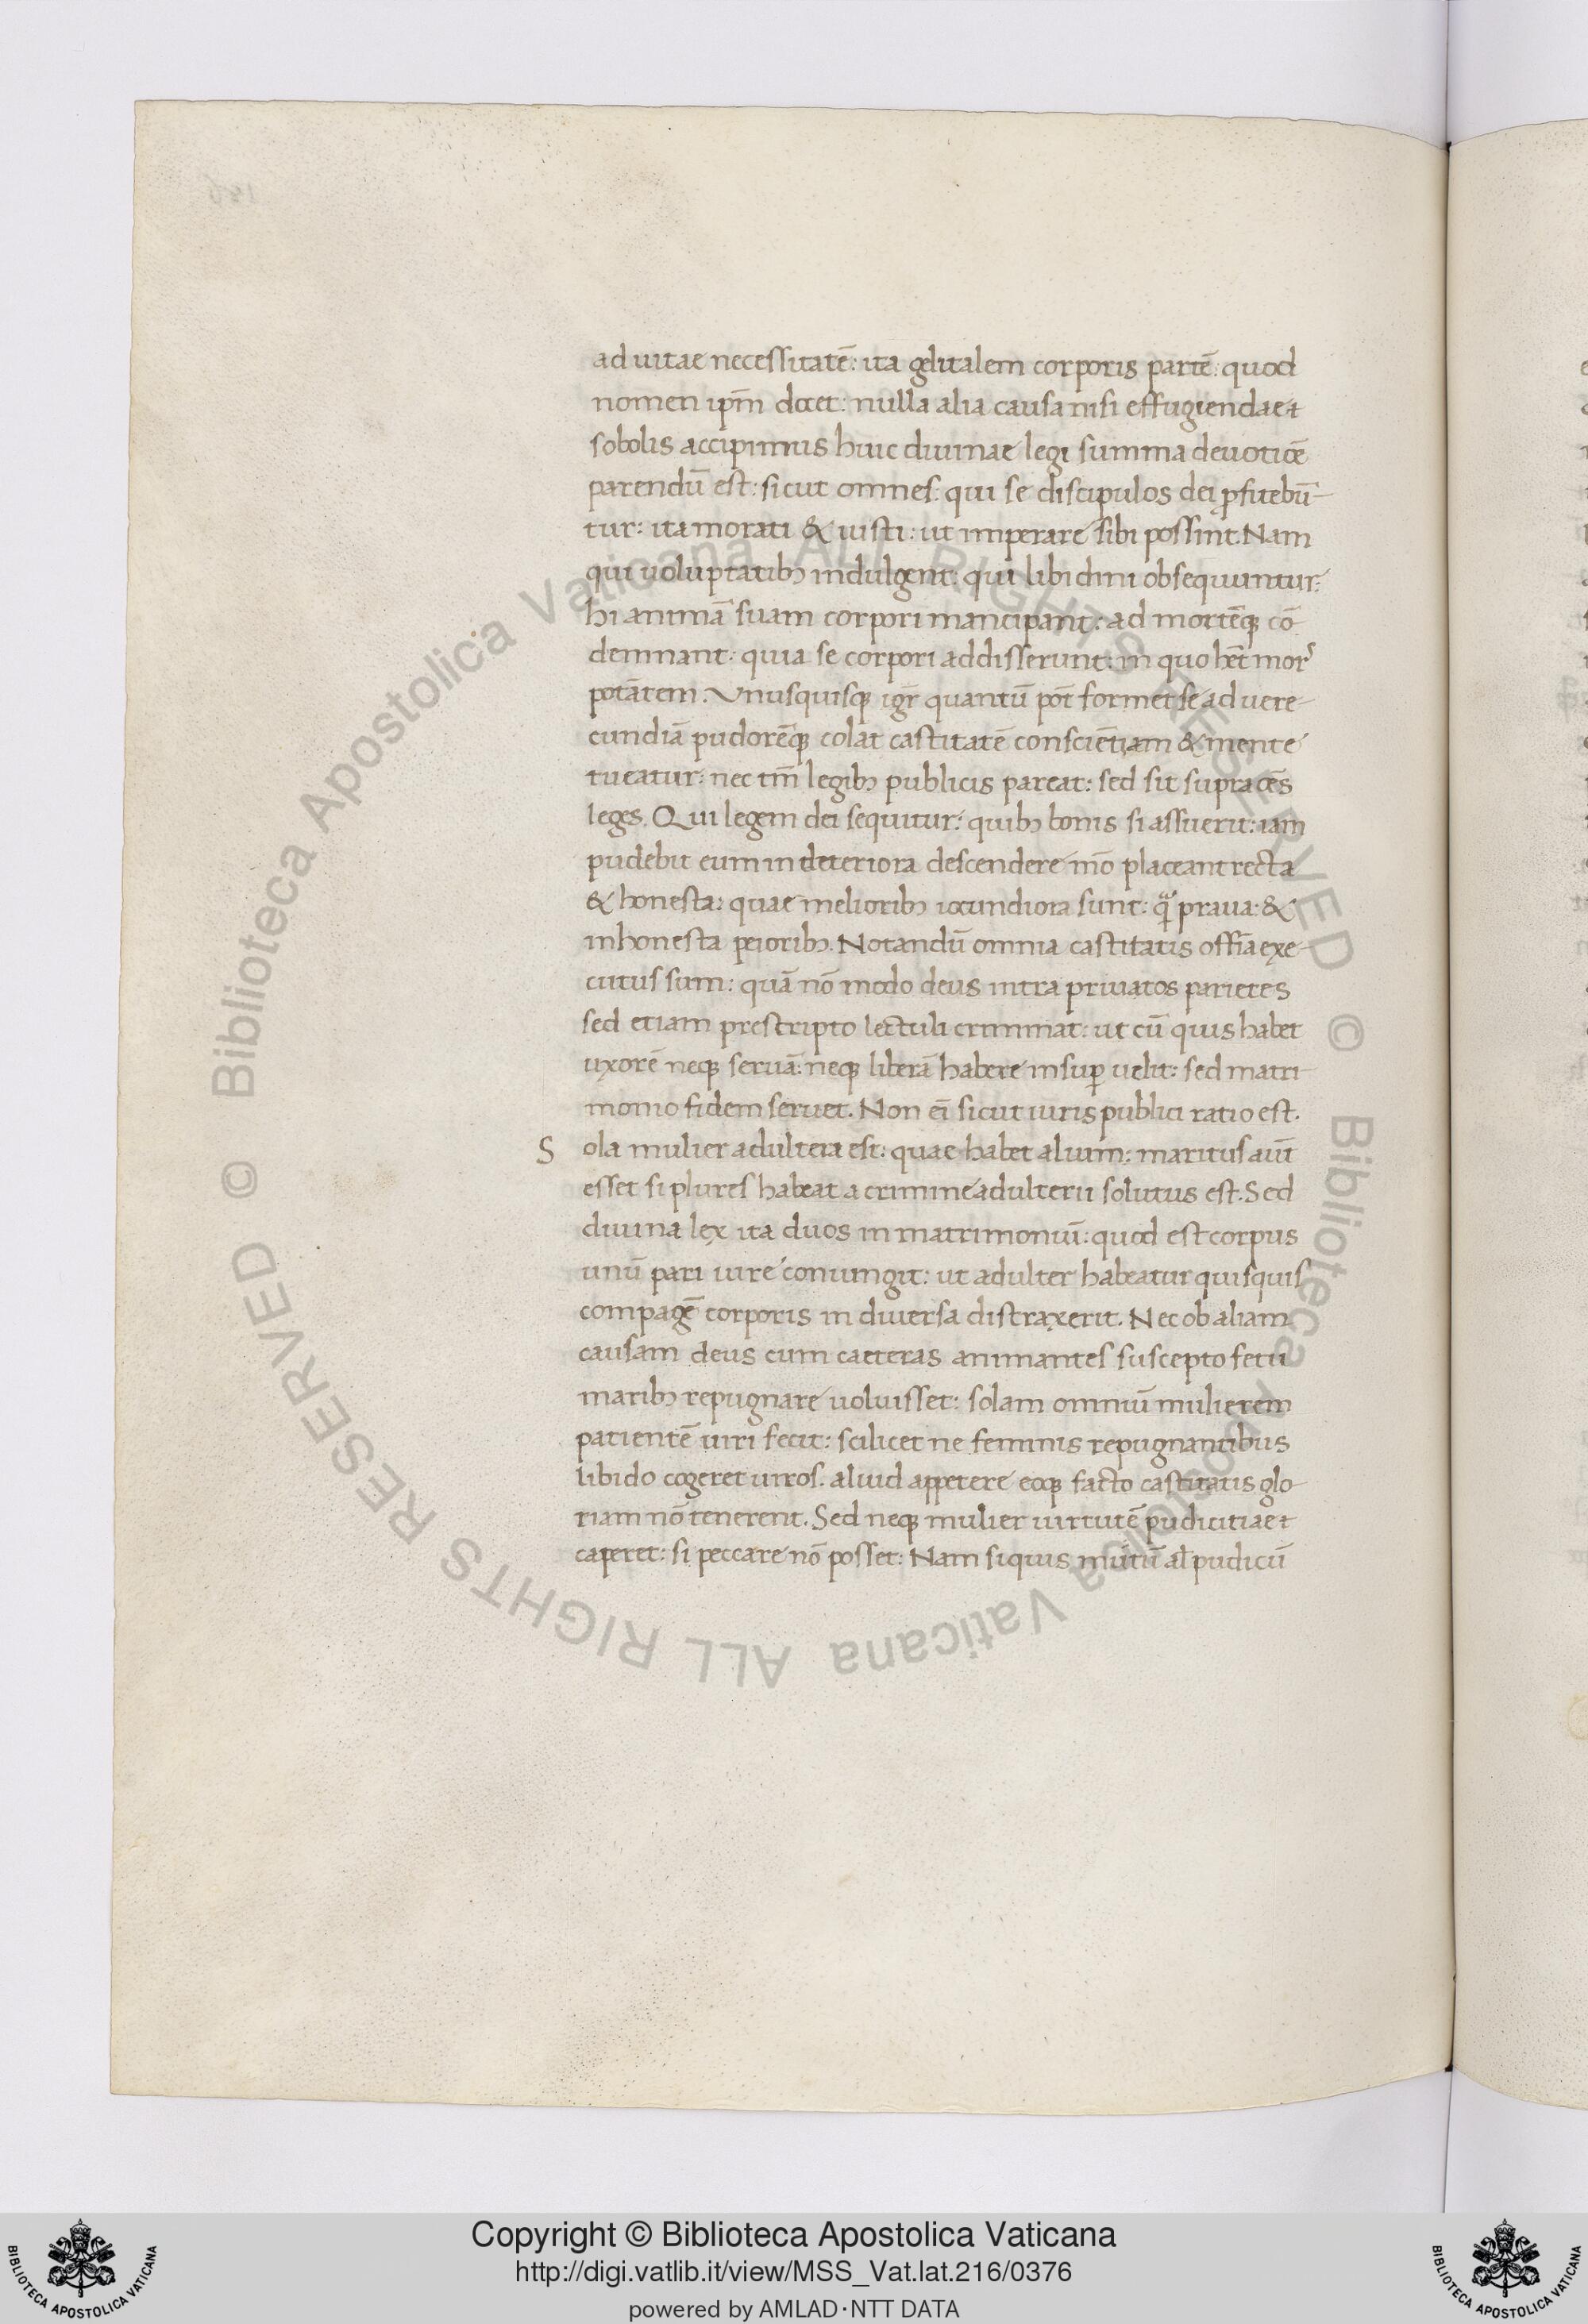 ad uitae necessitatē: ita gelitalem corporis partē: quod
nomen ipm̄ docet: nulla alia causa nisi effugiendae &
sobolis accipimus huic diuinae legi summa deuotiōe
parendū est: sicut omnes: qui se discipulos dei ꝓfitebū-
tur: ita morati & iusti: ut imperare sibi possint. Nam
qui uoluptatibꝫ indulgent: qui libidini obsequuntur:
hi animā suam corpori mancipant: ad mortēqꝫ cō
demnant: quia se corpori addisserunt: in quo hēt mors
potātem. Vnusquisqꝫ igr̄ quantū pōt formet se ad uere-
cundiā pudorēqꝫ colat castitatē consciēntiam & mente
tueatur: nec tm̄ legibꝫ publicis pareat: sed sit supra oēs
leges. Qui legem dei sequitur: quibꝫ bonis si assuerit: iam
pudebit eum in deteriora descendere mō placeant recta
& honesta: quae melioribꝫ iocundiora sunt: quā praua: &
inhonesta peioribꝫ. Notandū omnia castitatis offīa exe-
cutus sum: quā nō modo deus intra priuatos parietes
sed etiam prescripto lectuli criminat: ut cū quis habet
uxorē neqꝫ seruā: neqꝫ liberā habere insuꝑ uelit: sed matri
monio fidem seruet. Non eī sicut iuris publici ratio est.
S ola mulier adultera est: quae habet alium: maritus aūt
esset si plures habeat a crimine adulterii solutus est. Sed
diuina lex ita duos in matrimoniū: quod est corpus
unū pari iure coniungit: ut adulter habeatur quisquis
compagē corporis in diuersa distraxerit. Nec ob aliam
causam deus cum caeteras animantes suscepto fetu
maribꝫ repugnare uoluisset: solam omniū mulierem
patientē uiri fecit: scilicet ne feminis repugnantibus
libido cogeret uiros. aliud appetere eoqꝫ facto castitatis glo-
riam nō tenerent. Sed neqꝫ mulier uirtutē pudicitiae &
caperet: si peccare nō posset: Nam si quis mūtū al̄ pudicū
Copyright © Biblioteca Apostolica Vaticana
http://digi.vatlib.it/view/MSS_Vat.lat.216/0376
powered by AMLAD·NTT DATA
BIBLIOTECA APOSTOLICA VATICANA
BIBLIOTECA APOSTOLICA VATICANA
© Biblioteca Apostolica Vaticana ALL RIGHTS RESERVED © Biblioteca Apostolica Vaticana ALL RIGHTS RESERVED